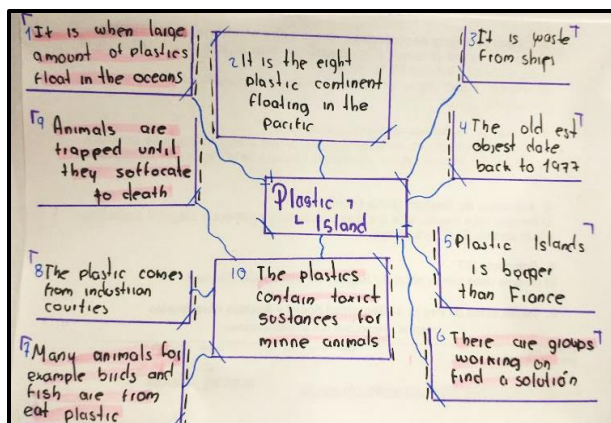 1 It is when large
amount of plastics
float in the oceans
2 It is the eight
plastic continent
floating in the
pacific
3 It is waste
from ships
4 The old est
objest date
back to 1977
Plastic
Island
5 Plastic Islands
is
than France
6 There are groups
working on
find a solution
7 Many animals for
example birds and
fish are from
eat plastic
8 The plastic comes
from industrian
counties
9 Animals are
trapped until
they soffocate
to death
10 The plastics
contain toxict
sustances for
minne animals